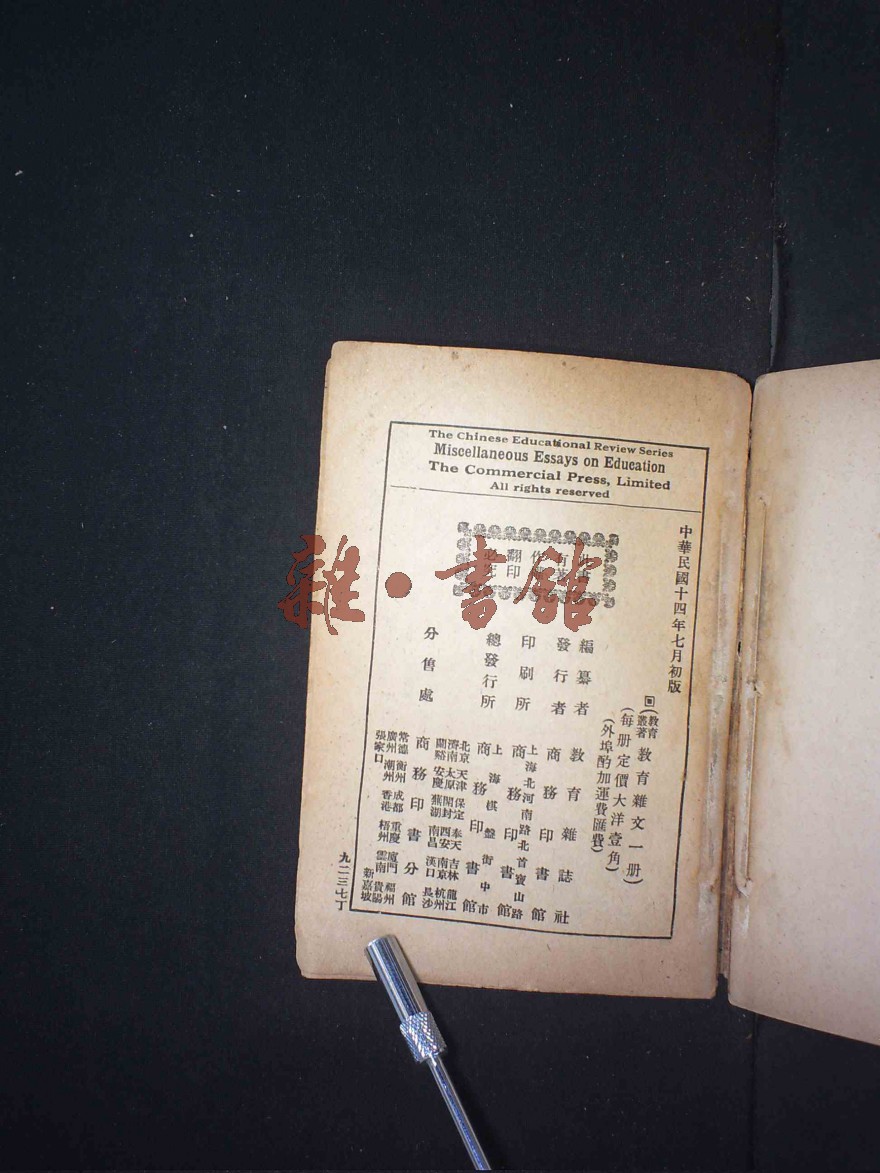 The Chinese Educational Review Series
Miscellaneous Essays on Education
The Commercial Press, Limited
All rights reserved
中華民國十四年七月初版
(教育叢著)教育雜文一册)
(每册定價大洋壹角)
(外埠酌加運費匯費)
翻印
編纂者 教育雜誌社
發行者 商務印書館
印刷所 上海北河南路北首寶山路
商務印書館
總發行所 上海棋盤街中市
商務印書館
分售處 商務印書分館
北京 天津 保定 奉天 吉林 龍江
濟南 太原 開封 西安 南京 杭州
蘭谿 安慶 蕪湖 南昌 漢口 長沙
常德 衡州 成都 重慶 廈門 福州
廣州 潮州 香港 梧州 雲南 貴陽
張家口 新嘉坡
九二三七丁
雜·書館